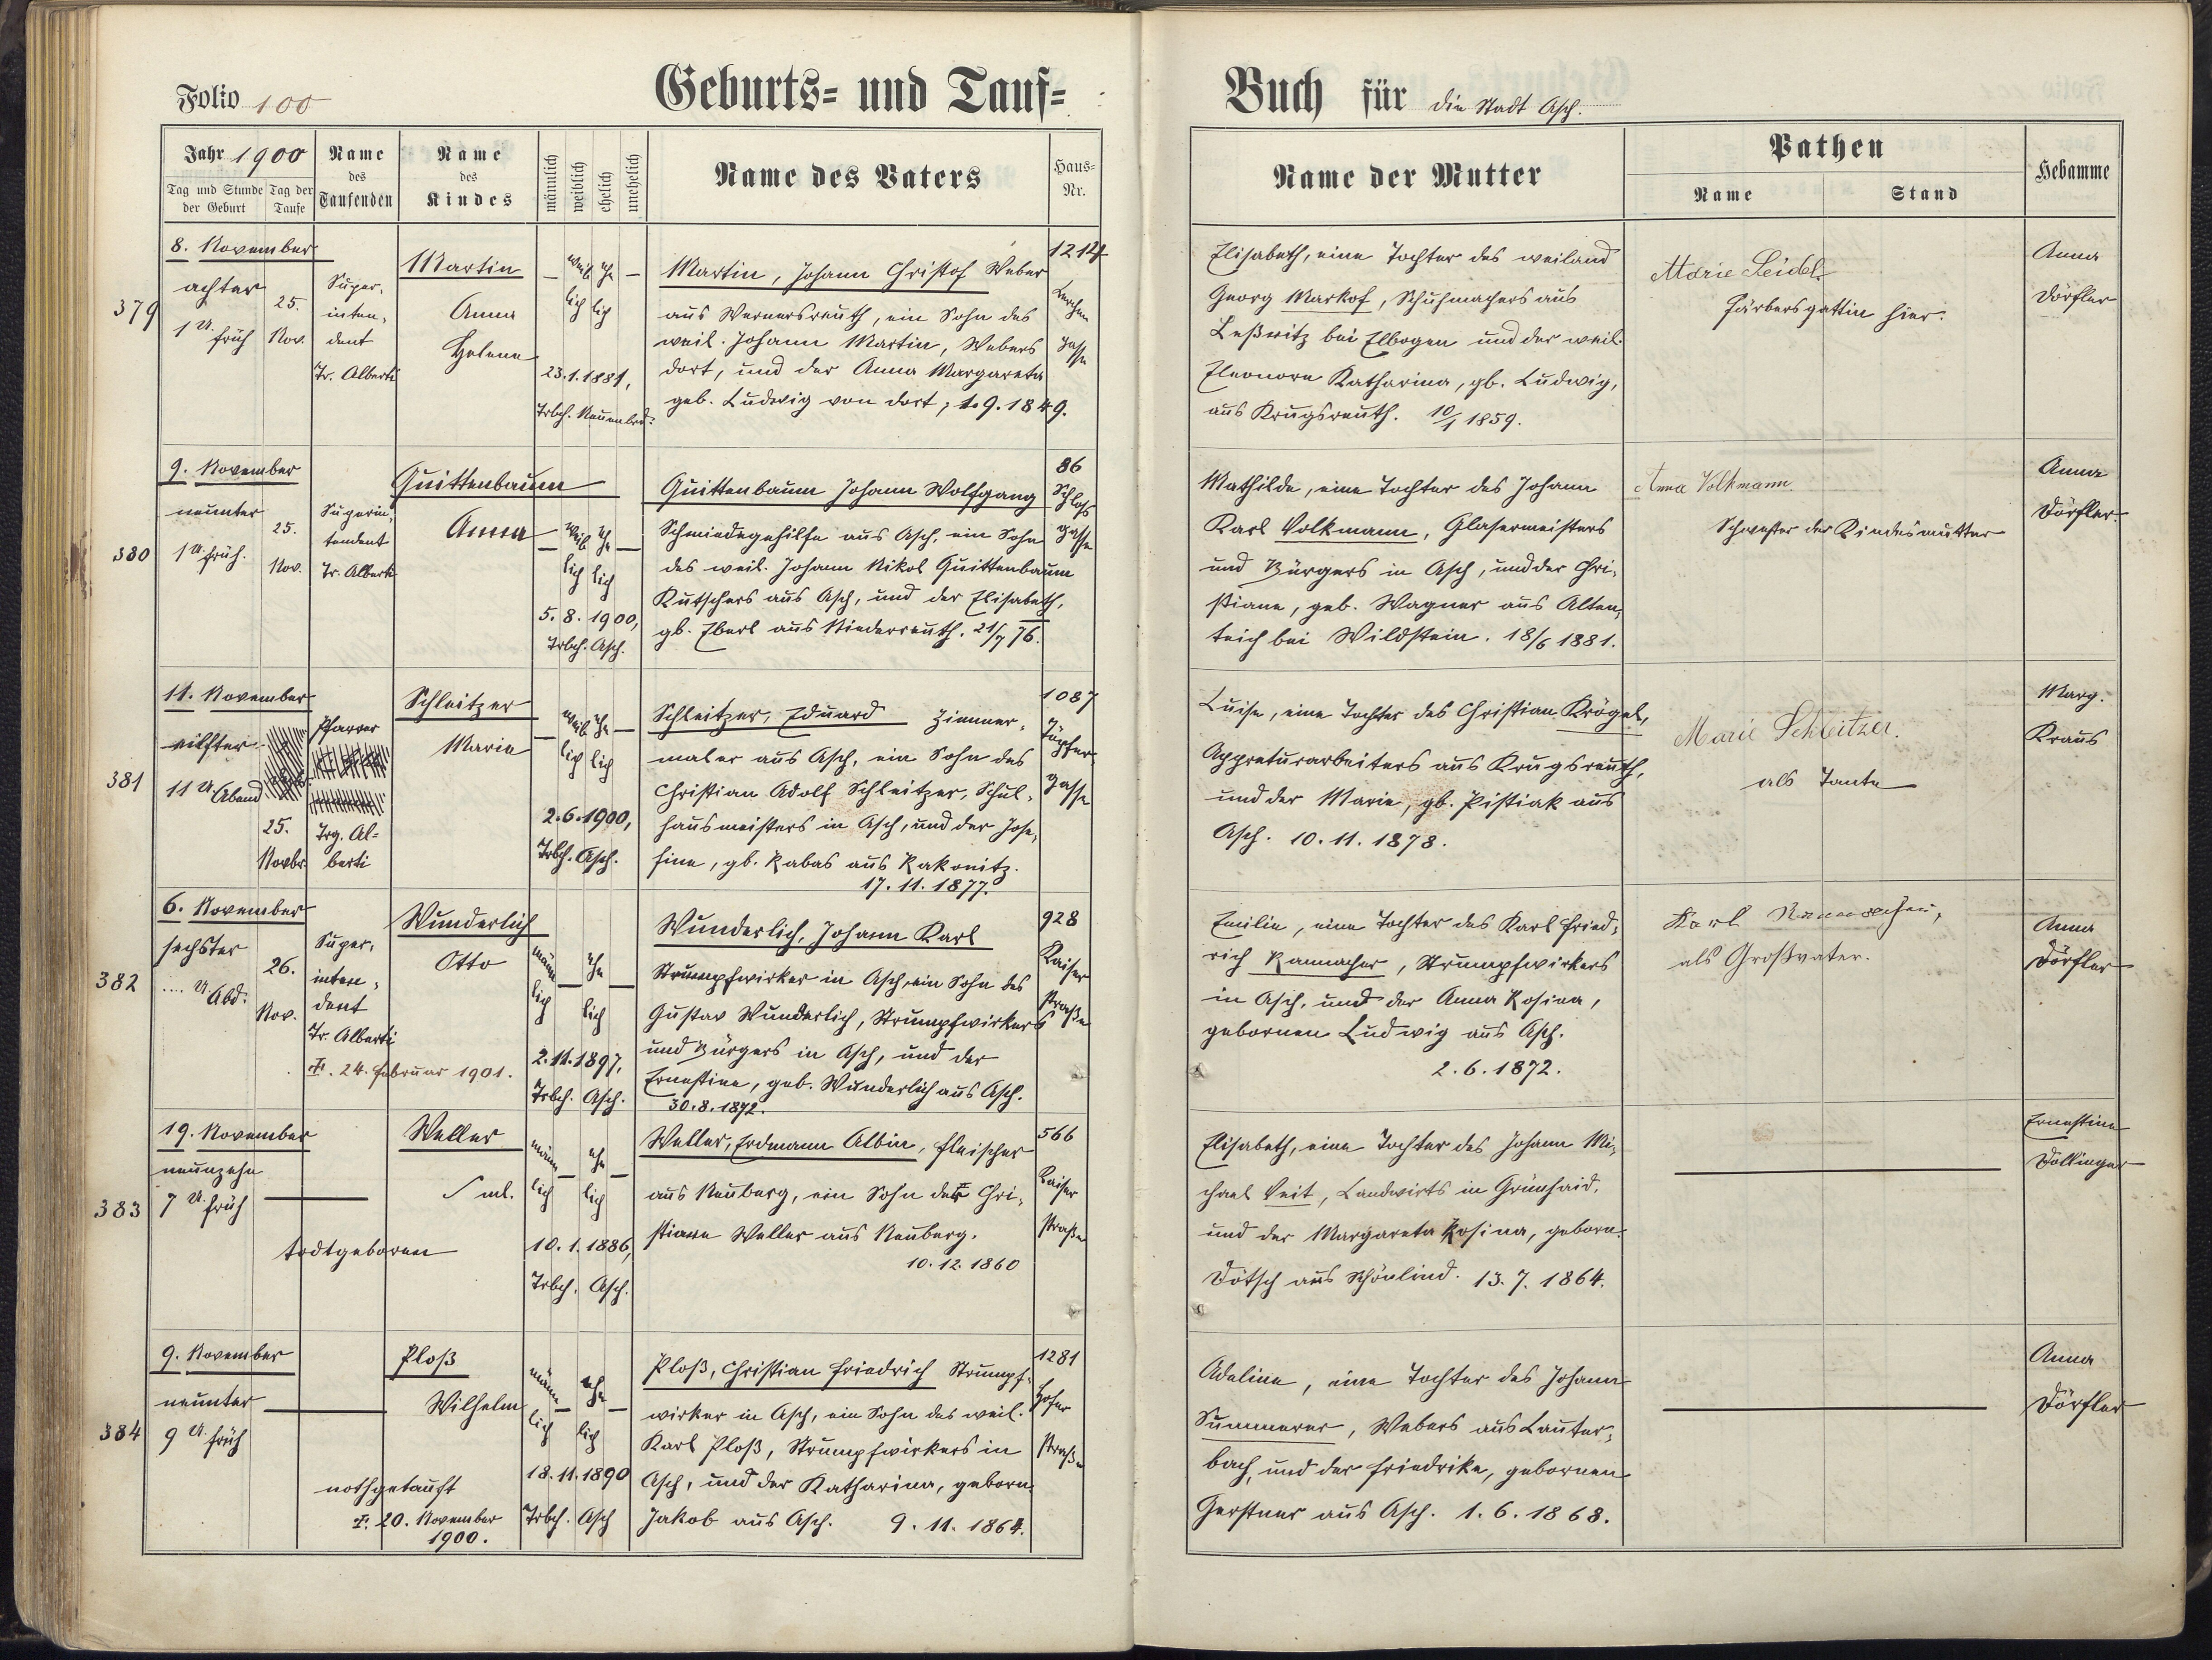 Folio 100
Geburts- und Tauf-
Jahr 1900
Tag und Stunde der Geburt
Tag der Taufe
Name des Taufenden
Name des Kindes
männlich
weiblich
ehelich
unehelich
Name des Vaters
Haus-Nr.
Buch für die Stadt Asch.
Name der Mutter
Pathen
Name
Stand
Hebamme
379
8. November
achter
1 U. früh
25.
Nov.
Super-
inten-
dent
Tr. Alberti
Martin
Anna
Helene
— weib ehe —
lich lich
23.1.1881,
Trbch. Neuenbrd.
Martin, Johann Christof Weber
aus Wernersreuth, ein Sohn des
weil. Johann Martin, Webers
dort, und der Anna Margareta
geb. Ludwig von dort; 1.9.1849.
1214
Lerchen
Gasse
Elisabeth, eine Tochter des weiland
Georg Markof, Schuhmachers aus
Leßnitz bei Elbogen und der weil.
Eleonore Katharina, gb. Ludwig,
aus Krugsreuth. 10/1 1859.
Marie Seidel
Färbersgattin hier.
Anna
Dörfler
380
9. November
neunter
1 U. früh.
25.
Nov.
Superin-
tendent
Tr. Alberti
Quittenbaum
Anna
— weib ehe —
lich lich
5. 8. 1900,
Trbch. Asch.
Quittenbaum Johann Wolfgang
Schmiedegehilfe aus Asch, ein Sohn
des weil. Johann Nikol Quittenbaum
Kutschers aus Asch, und der Elisabeth,
gb. Eberl aus Niederreuth. 21/7 76.
86
Schloß
Gasse
Mathilde, eine Tochter des Johann
Karl Volkmann, Glasermeisters
und Bürgers in Asch, und der Chri-
stiane, geb. Wagner aus Alten-
teich bei Wildstein. 18/6 1881.
Anna Volkmann.
Schwester der Kindesmutter
Anna
Dörfler.
381
11. November
eilfter
11 U. Abend
25.
Novbr.
Pfarrer
Trg. Al-
berti
Schleitzer
Maria
— weib ehe —
lich lich
2.6.1900,
Trbch. Asch.
Schleitzer, Eduard Zimmer-
maler aus Asch, ein Sohn des
Christian Adolf Schleitzer, Schul-
hausmeisters in Asch, und der Jose-
fine, gb. Rabas aus Rakonitz.
17. 11. 1877.
1087
Töpfer
Gasse
Luise, eine Tochter des Christian Krögel,
Appreturarbeiters aus Krugsreuth,
und der Marie, gb. Pistiak aus
Asch. 10. 11. 1878.
Marie Schleitzer.
als Tante
Marg.
Kraus
382
6. November
sechster
.... U. Abd.
26.
Nov.
Super-
inten-
dent
Tr. Alberti
†. 24. Februar 1901.
Wunderlich
Otto
männ — ehe —
lich lich
2.11.1897,
Trbch. Asch.
Wunderlich, Johann Karl
Strumpfwirker in Asch, ein Sohn des
Gustav Wunderlich, Strumpfwirkers
und Bürgers in Asch, und der
Ernestine, geb. Wunderlich aus Asch.
30. 8. 1872.
928
Kaiser
straße
Emilie, eine Tochter des Karl Fried-
rich Rannacher, Strumpfwirkers
in Asch, und der Anna Rosina,
gebornen Ludwig aus Asch.
2. 6. 1872.
Karl
als Großvater.
Anna
Dörfler
383
19. November
neunzehn
7 U. früh
todtgeboren
Weller
ml.
männ — ehe —
lich lich
10. 1. 1886,
Trbch. Asch.
Weller, Erdmann Albin, Fleischer
aus Neuberg, ein Sohn der Chri-
stiane Weller aus Neuberg.
10. 12. 1860
566
Kaiser
straße
Elisabeth, eine Tochter des Johann Mi-
chael Veit, Landwirts in Grünhaid,
und der Margareta Rosina, geborn.
Dötsch aus Schönlind. 13. 7. 1864.
Ernestine
Dollinger
384
9. November
neunter
9 U. früh
nothgetauft
†. 20. November
1900.
Ploß
Wilhelm
männ — ehe —
lich lich
18. 11. 1890
Trbch. Asch
Ploß, Christian Friedrich Strumpf-
wirker in Asch, ein Sohn des weil.
Karl Ploß, Strumpfwirkers in
Asch, und der Katharina, geborn.
Jakob aus Asch. 9. 11. 1864.
1281
Hofer
straße
Adeline, eine Tochter des Johann
Summerer, Webers aus Lauter-
bach, und der Friedrike, gebornen
Gerstner aus Asch. 1. 6. 1868.
Anna
Dörfler